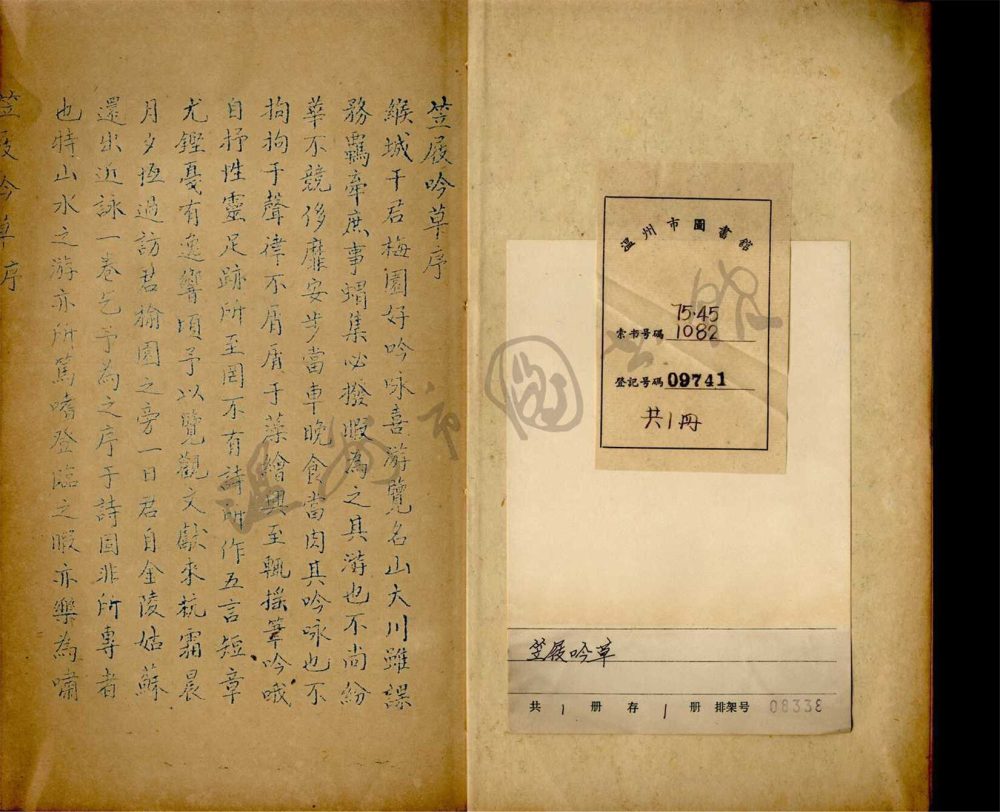 温州市圖書館
索书号碼 75.45
1082
登記号碼 09741
共1冊
笠屐吟草
共 1 册 存 1 册 排架号 08338
笠屐吟草序
緱城干君梅園好吟咏喜游覽名山大川雖課
務羈牽庶事蝟集必撥暇為之其游也不尚紛
華不競侈靡安步當車晚食當肉其吟咏也不
拘拘于聲律不屑屑于藻繪興至輒搖筆吟哦
自抒性靈足跡所至罔不有詩所作五言短章
尤鏗戛有逸響頃予以覽觀文獻來杭霜晨
月夕恆過訪君榆園之旁一日君自金陵姑蘇
還出近詠一卷乞予為之序于詩固非所專者
也特山水之游亦所篤嗜登臨之暇亦樂為嘯
笠屐吟草序